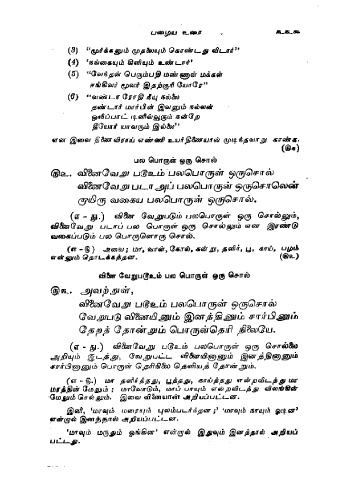 பழைய உரை ௧௧௯
(3) “மூர்க்கனும் முதலையும் கொண்டது விடார்”
(4) ‘கல்கையும் கிளியும் உண்டார்’
(5) “வேந்தன் பெரும்பதி மண்ணுள் மக்கள்
ஈங்கிவர் மூவர் இதற்குரி யோரே”
(6)
தண்டார் மார்பின் இவனும் கல்லன்
தீயோர் யாவரும் இல்லே”
என இவை நிணவிராய் எண்ணி உயர்திணையால் முடிந்தவாறு காண்க.
பல பொருள் ஒரு சொல்
௫௨. வினைவேறு படூஉம் பலபொருள் ஒருசொல்
வினைவேறு படாஅப் பலபொருள் ஒருசொலென்
றாயிரு வகைய பலபொருள் ஒருசொல்.
(எ - து.) வினை வேறுபடும் பலபொருள் ஒரு சொல்லும்,
வினைவேறு படாப் பல பொருள் ஒரு சொல்லும் என இரண்டு
வகைப்படும் பல பொருளொரு சொல்.
(எ - டு) அவை ; மா, வாள், கோல், கன்று, தளிர், பூ, காய், பழம்
என்னும் தொடக்கத்தன.
வினை வேறுபடூஉம் பல பொருள் ஒரு சொல்
௫௩. அவற்றுள்,
வினைவேறு படூஉம் பலபொருள் ஒருசொல்
வேறுபடு வினையினும் இனத்தினும் சார்பினும்
தேறத் தோன்றும் பொருள்தெரி நிலையே.
(எ - து.) வினைவேறு படூஉம் பலபொருள் ஒரு சொல்லை
அறியும் இடத்து, வேறுபட்ட வினையினானும் இனத்தினானும்
சார்பினானும் பொருள் தெரிநிலை தெளியத் தோன்றும்.
(எ - டு.) மா தளிர்த்தது, பூத்தது, காய்த்தது என்றவிடத்து மா
மரத்தின் மேலும் ; மாவோடும், மாப் பாயும் என்றவிடத்து விலங்கின்
மேலும் செல்லும். இவை வினையான் அறியப்பட்டன.
இனி, ‘மாவும் மரையும் புலம்படர்ந்தன’ ; ‘மாவும் காயும் ஓடின’
என்றால் இனத்தால் அறியப்பட்டன.
‘மாவும் மருதும் ஓங்கின’ என்றால் இதுவும் இனத்தால் அறியப்
பட்டது.